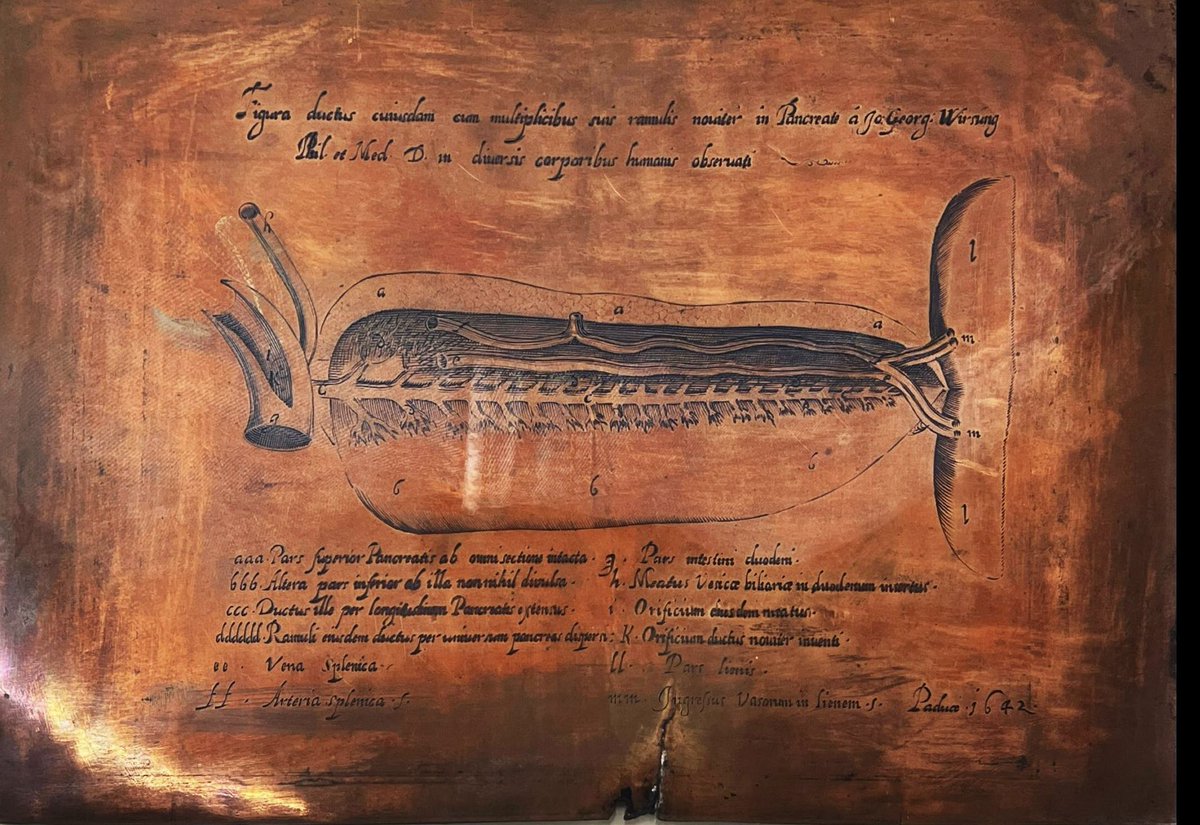 Figura ductus cuiusdam cum multiplicibus suis ramulis noviter in Pancreate á Jo. Georg. Wirsüng
Phil. et Med. D. in diversis corporibus humanis observati
h
a
a
a
l
m
i
K
e
c
c
g
m
b
b
b
l
aaa Pars superior Pancreatis ab omni sectione intacta.
bbb. Altera pars inferior ab illa non nihil divulsa.
ccc. Ductus ille per longitudinem Pancreatis extensus.
dddddd. Ramuli eiusdem ductus per universum pancreas dispersi:
ee. Vena Splenica.
ff. Arteria splenica. s.
g. Pars intestini duodeni.
h. Meatus Vesicæ biliariæ in duodenum insertus.
i. Orificium eiusdem meatus.
K. Orificium ductus noviter inventi
ll. Pars lienis.
mm. Ingressus Vasorum in lienem. s. Paduæ. 1642.